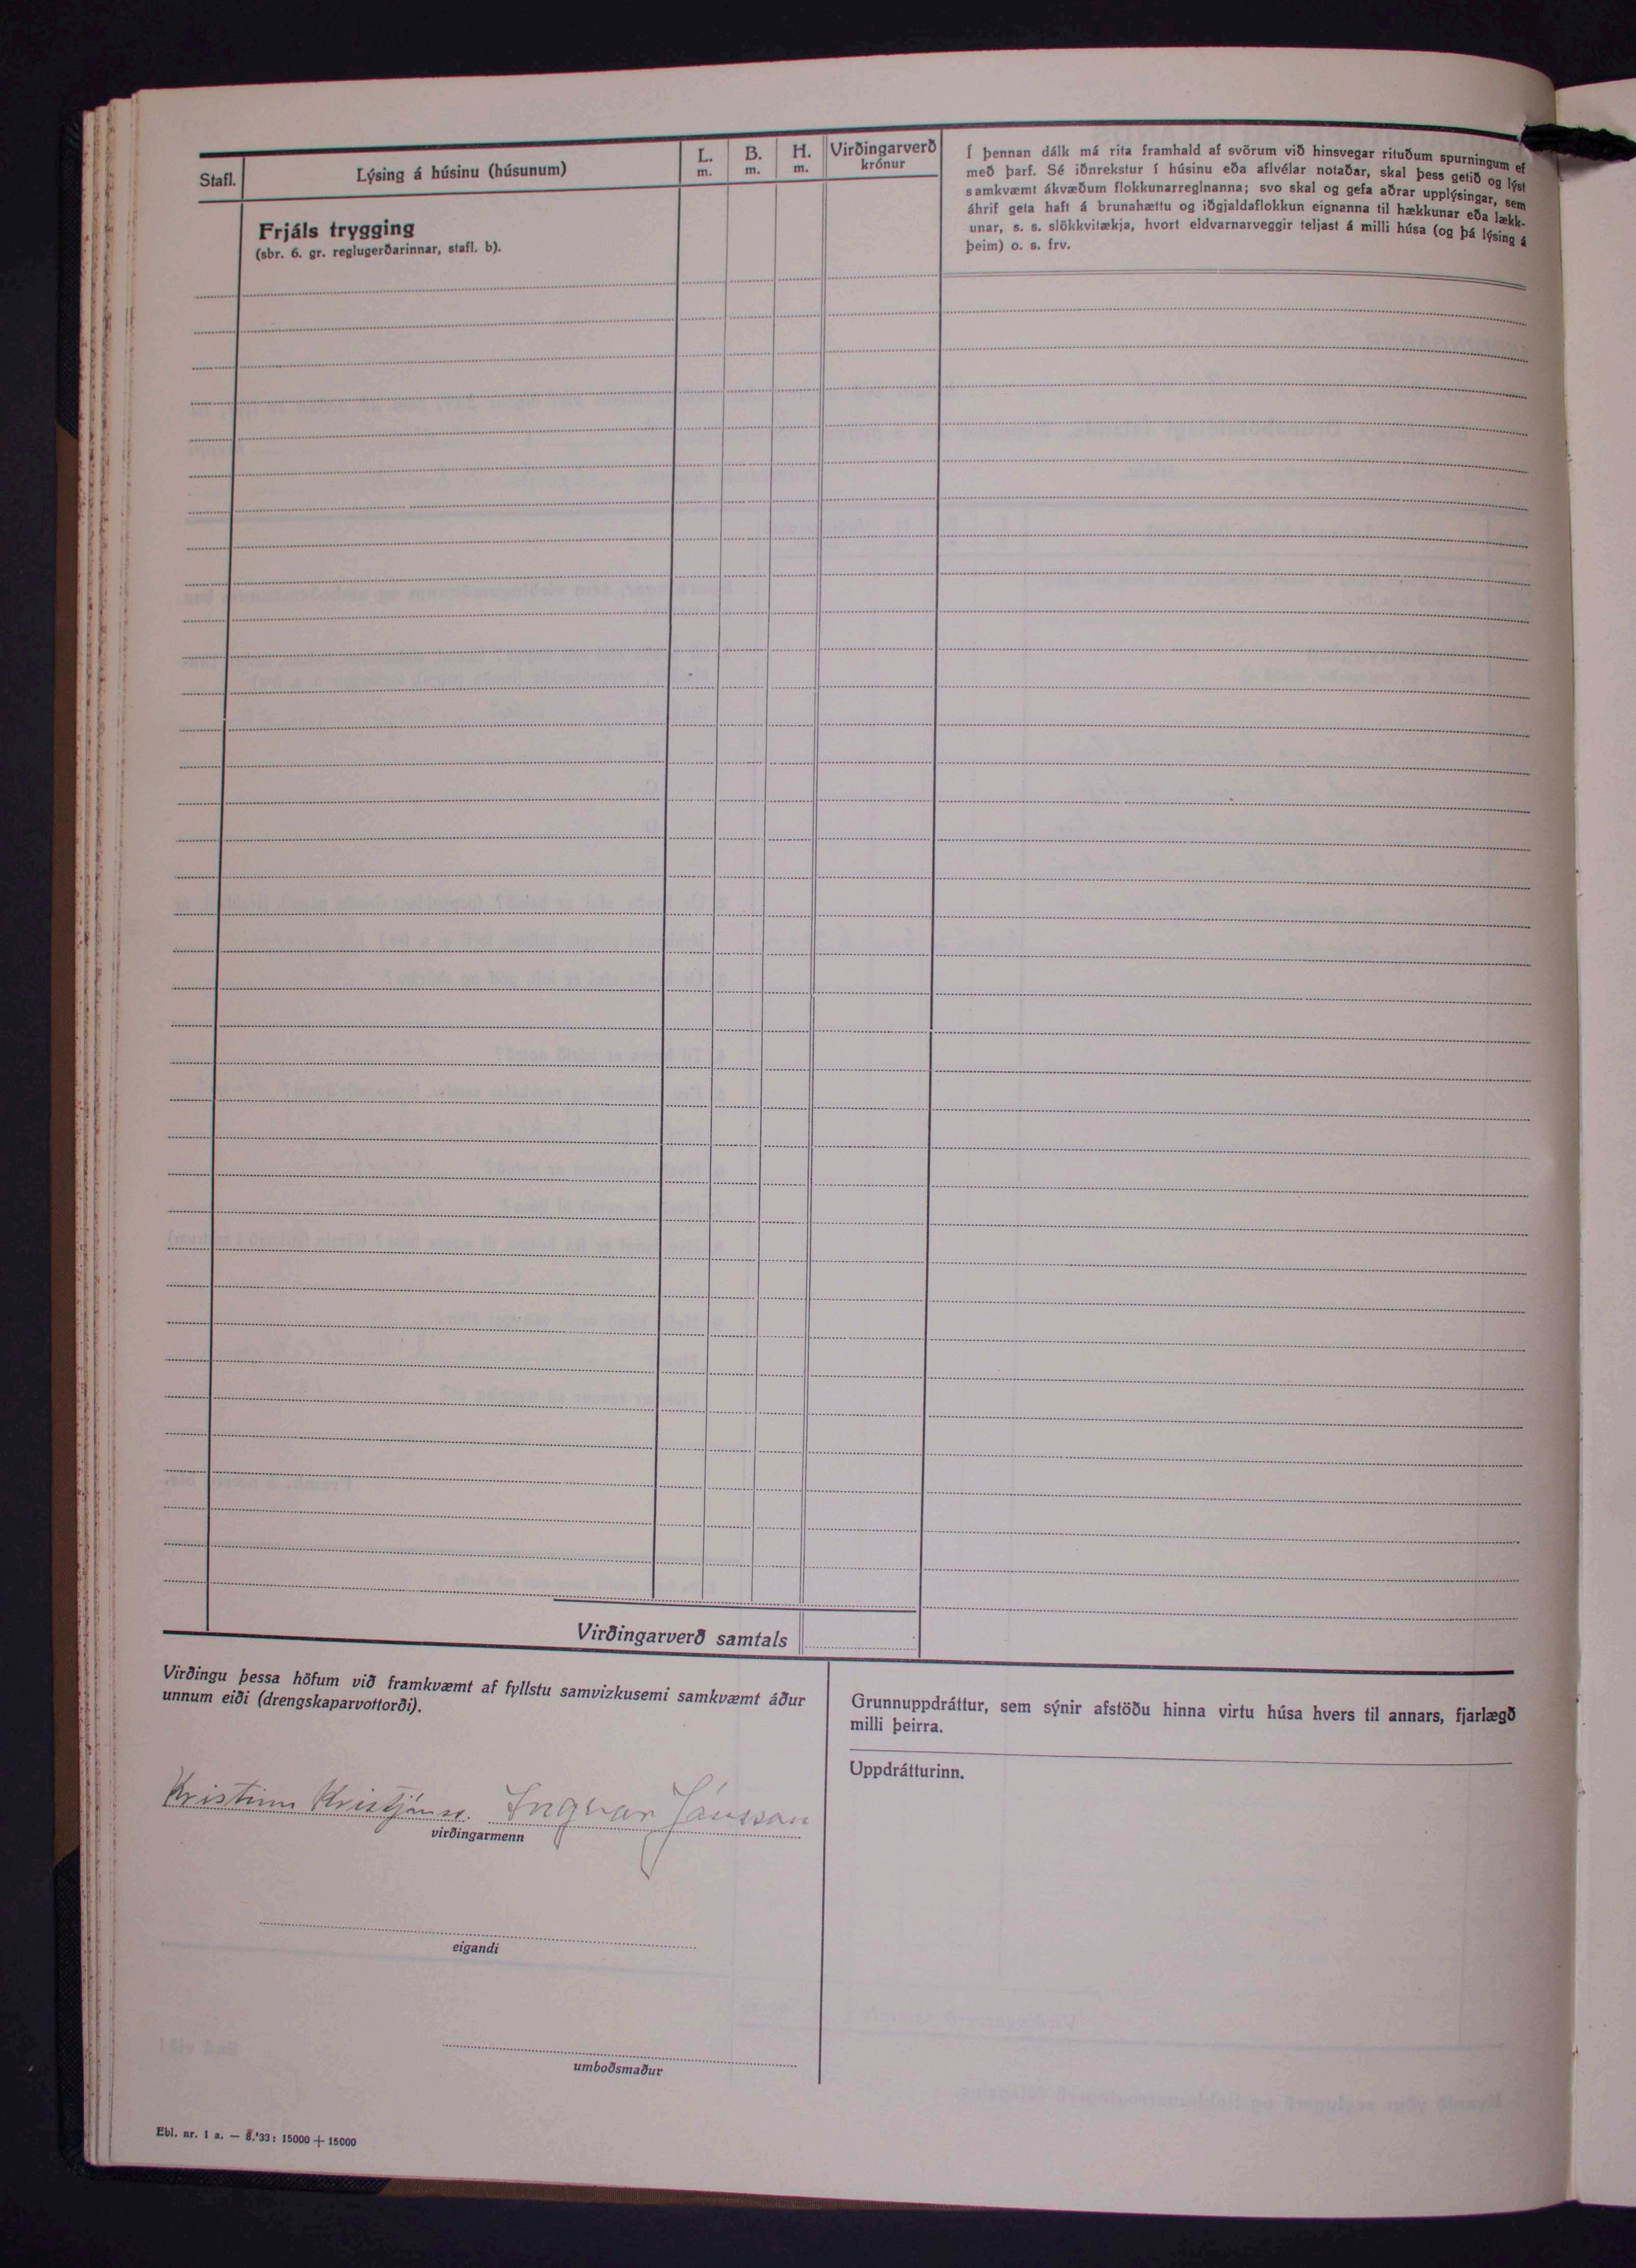 Stafl.
Lýsing á húsinu (húsunum)
L.
m.
B.
m.
H.
m.
Virðingarverð
krónur
Í þennan dálk má rita framhald af svörum við hinsvegar rituðum spurningum ef
með þarf. Sé iðnrekstur í húsinu eða aflvélar notaðar, skal þess getið og lýst
samkvæmt ákvæðum flokkunarreglnanna; svo skal og gefa aðrar upplýsingar, sem
áhrif geta haft á brunahættu og iðgjaldaflokkun eignanna til hækkunar eða lækk-
unar, s. s. slökkvitækja, hvort eldvarnarveggir teljast á milli húsa (og þá lýsing á
þeim) o. s. frv.
Frjáls trygging
(sbr. 6. gr. reglugerðarinnar, stafl. b).
Virðingarverð samtals
Virðingu þessa höfum við framkvæmt af fyllstu samvizkusemi samkvæmt áður
unnum eiði (drengskaparvottorði).
Kristinn Kristjánss. Ingvar Jónsson
virðingarmenn
eigandi
umboðsmaður
Grunnuppdráttur, sem sýnir afstöðu hinna virtu húsa hvers til annars, fjarlægð
milli þeirra.
Uppdrátturinn.
Ebl. nr. 1 a. — 8.'33: 15000 + 15000